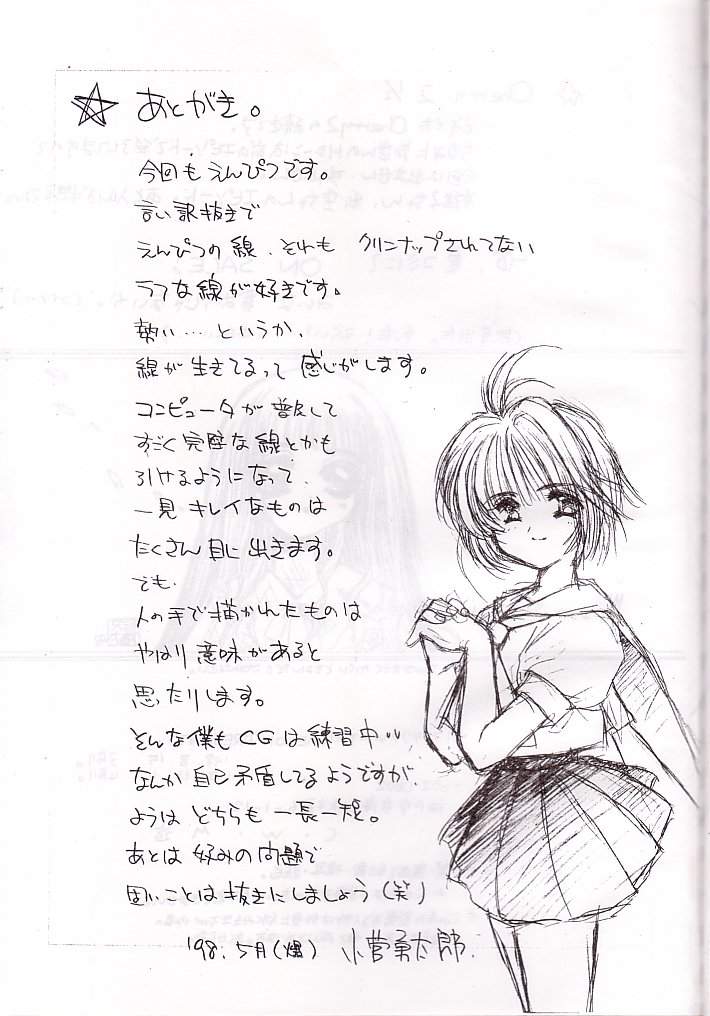 ☆ あとがき。
今回もえんぴつです。
言い訳抜きで
えんぴつの線、それも クリンナップされてない
ラフな線が好きです。
勢い…というか、
線が生きてるって 感じがします。
コンピュータが普及して
すごく完璧な線とかも
引けるようになって、
一見キレイなものは
たくさん目に出きます。
でも、
人の手で描かれたものは
やはり意味があると
思たりします。
そんな僕もCGは練習中‥
なんか自己矛盾してるようですが、
ようは どちらも 一長一短。
あとは 好みの問題で
固いことは抜きにしましょう(笑)
'98.5月 小菅勇太郎.